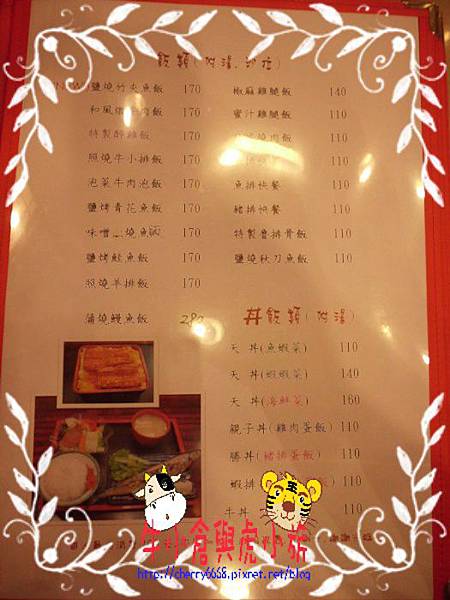 飯類(附湯.沙拉)
NEW!鹽燒竹夾魚飯 170
和風 肉飯 170
特製醉雞飯 170
照燒牛小排飯 170
泡菜牛肉泡飯 170
鹽烤青花魚飯 170
味噌 燒魚飯 170
鹽烤鮭魚飯 170
照燒羊排飯 170
蒲燒鰻魚飯 280
椒麻雞腿飯 140
蜜汁雞腿飯 110
燒肉飯 110
110
魚排快餐 110
豬排快餐 110
特製魯排骨飯 110
鹽燒秋刀魚飯 110
丼飯類(附湯)
天丼(魚蝦菜) 110
天丼(蝦蝦菜) 140
天丼(海鮮菜) 160
親子丼(雞肉蛋飯) 110
勝丼(豬排蛋飯) 110
蝦排 110
牛丼 110
牛小倉與虎小族
http://cherry6668.pixnet.net/blog